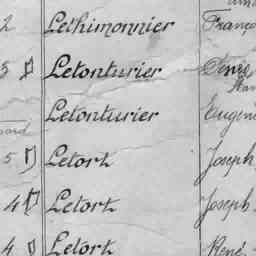 2 Léthimonnier Franço
3 Letonturier Denis
Letonturier Eugen
5 Letort Joseph
4 Letort Joseph
4 Letort René